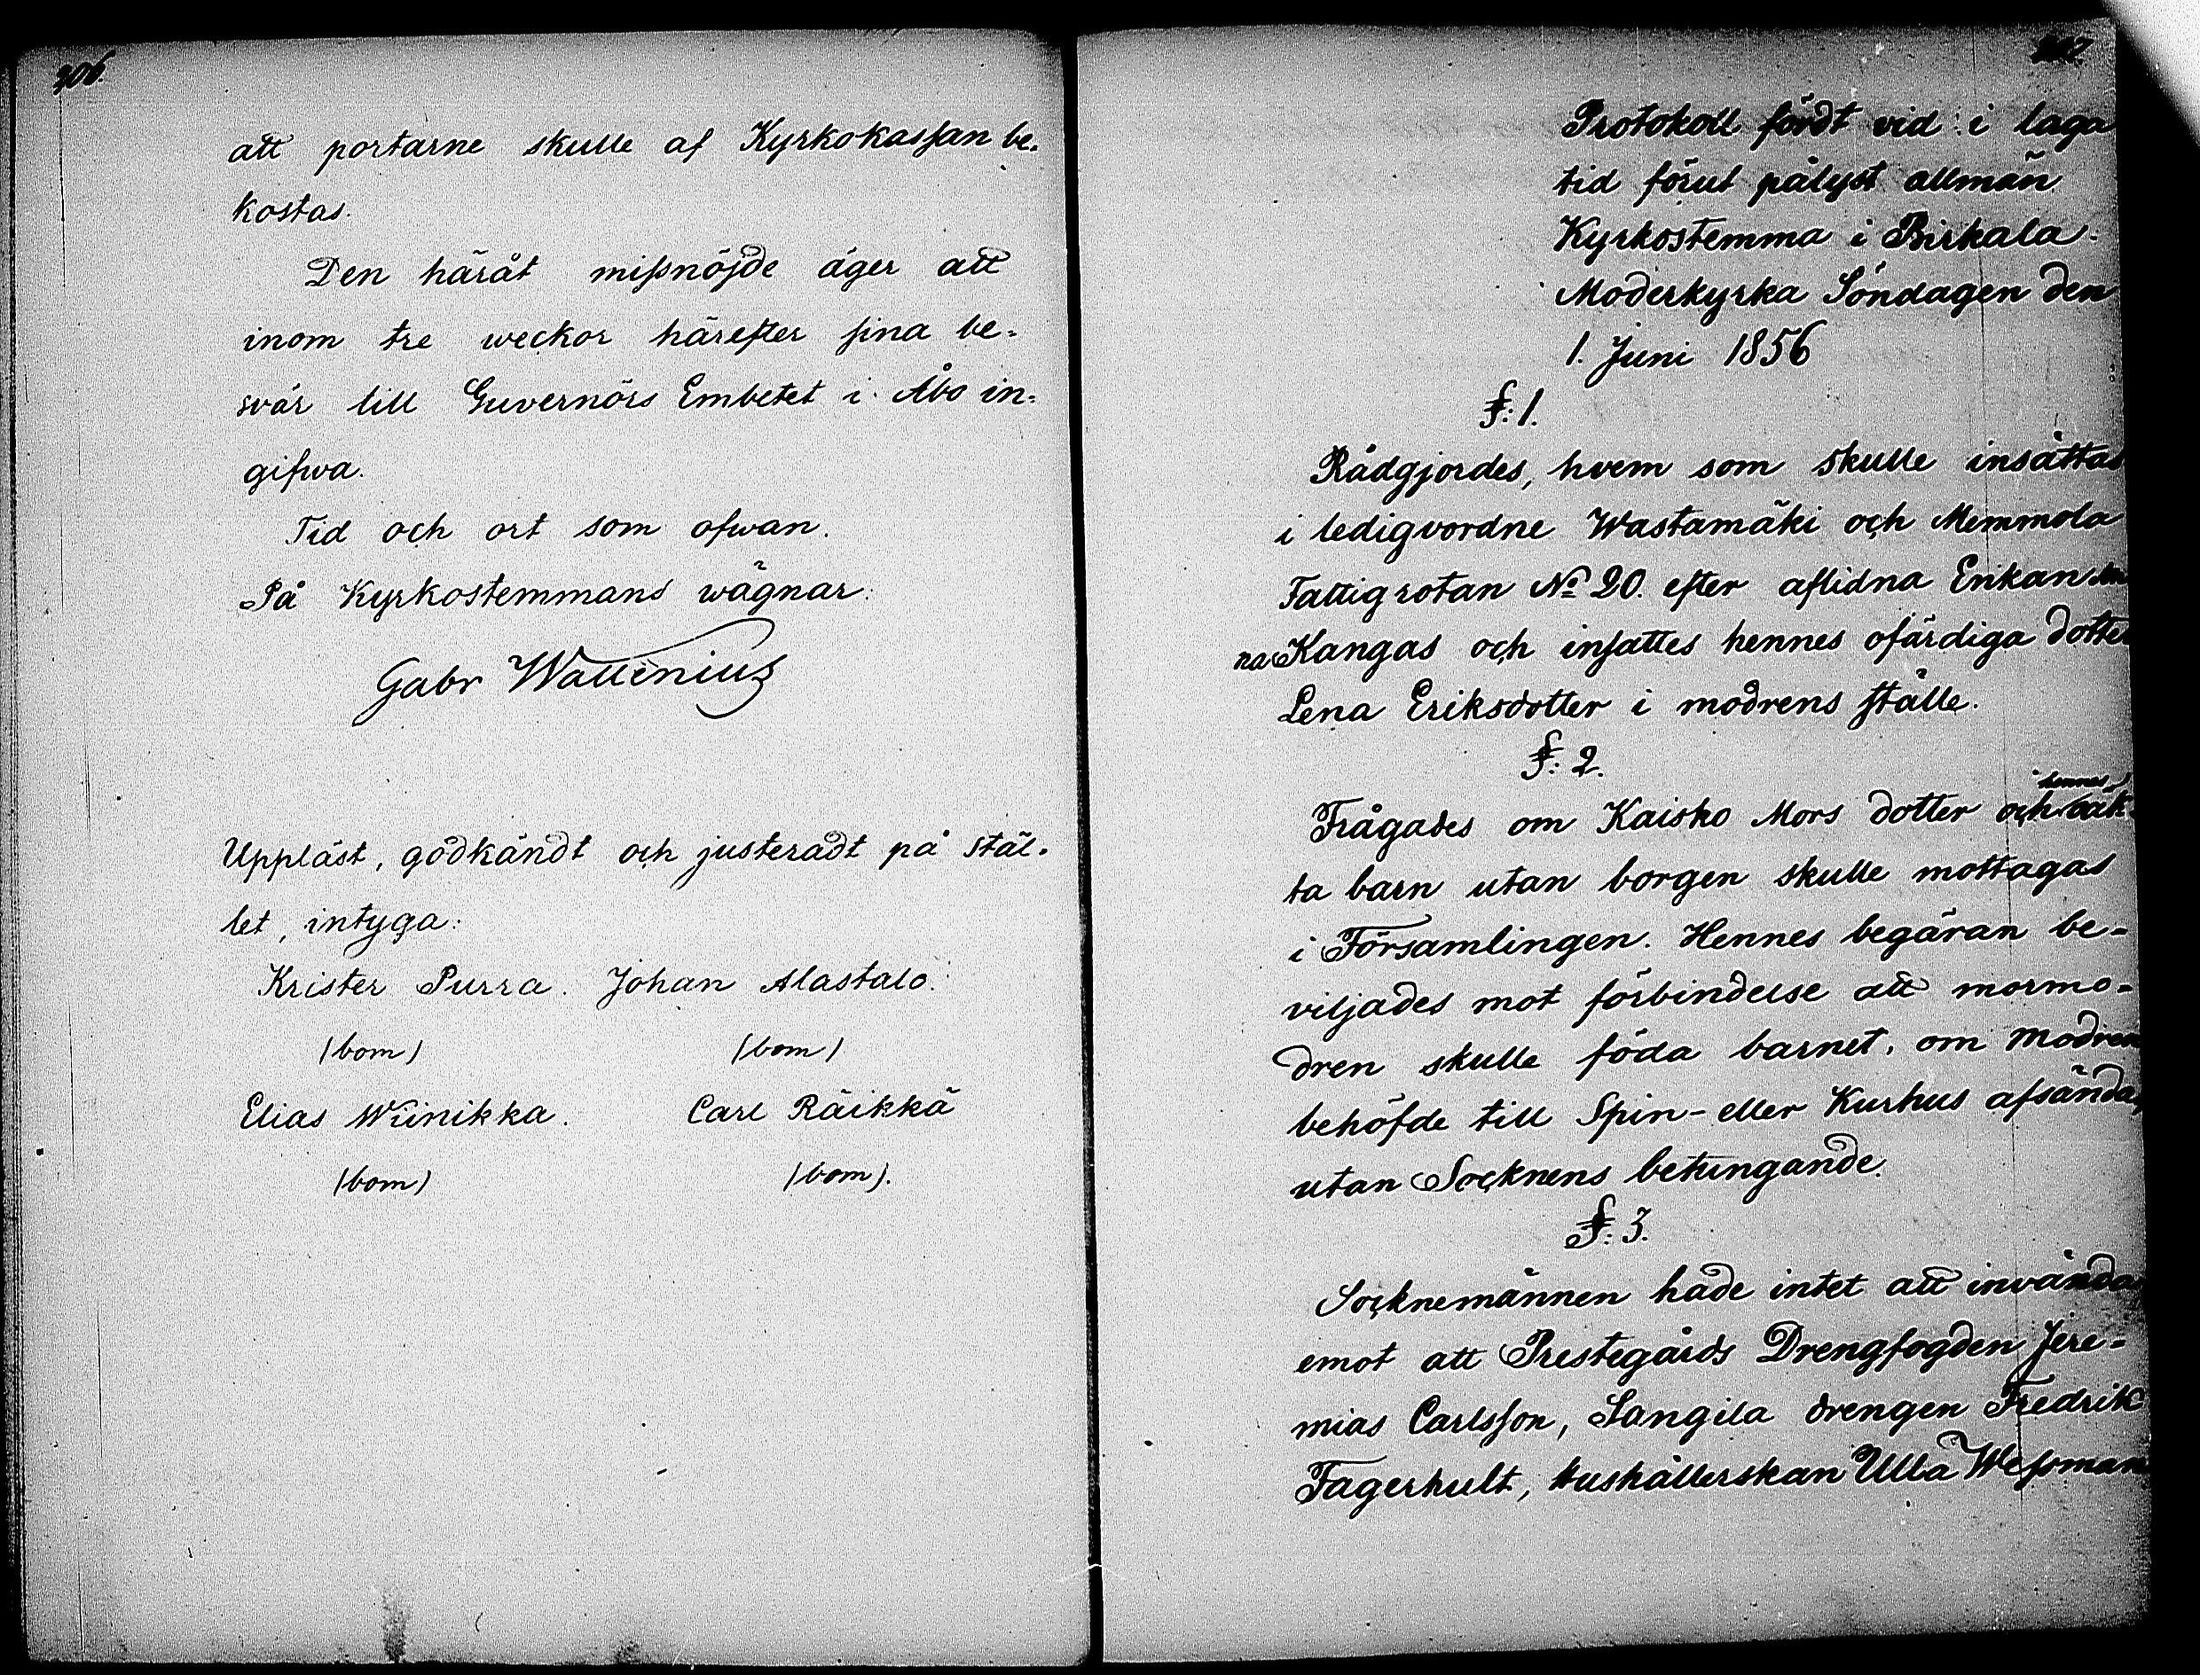 306.
att portarne skulle af Kyrkokassan be-
kostas.
Den häråt missnöjde äger att
inom tre weckor härefter sina be-
svär till Guvernörs Embetet i Åbo in-
gifwa.
Tid och ort som ofwan.
På Kyrkostemmans wägnar:
Gabr Wallenius
Uppläst, godkändt och justeradt på stäl-
let, intyga:
Krister Purra. Johan Alastalo.
(bom) (bom)
Elias Wiinikka. Carl Räikkä
(bom) (bom).
307.
Protokoll fördt vid i laga
tid förut pålyst allmän
Kyrkostemma i Birkala
Moderkyrka Söndagen den
1. Juni 1856
§: 1.
Rådgjordes, hvem som skulle insättas
i ledigvordne Wastamäki och Memmola
Fattigrotan No 20. efter aflidna Enkan
Kangas och insattes hennes ofärdiga dotter
Lena Eriksdotter i modrens ställe.
§: 2.
hennes
Frågades om Kaisko Mors dotter och oäk-
ta barn utan borgen skulle mottagas
i Församlingen. Hennes begäran be-
viljades mot förbindelse att mormo-
dren skulle föda barnet, om modren
behöfde till Spin- eller Kurhus afsändas,
utan Socknens betungande.
§: 3.
Socknemännen hade intet att invända
emot att Prestegårds Drengfogden Jere-
mias Carlsson, Sangila drengen Fredrik
Fagerhult, Hushållerskan Ulla Wessman